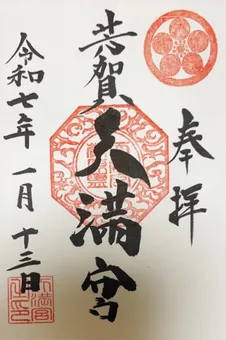 奉拝
芳賀天満宮
令和七年 一月 十三日